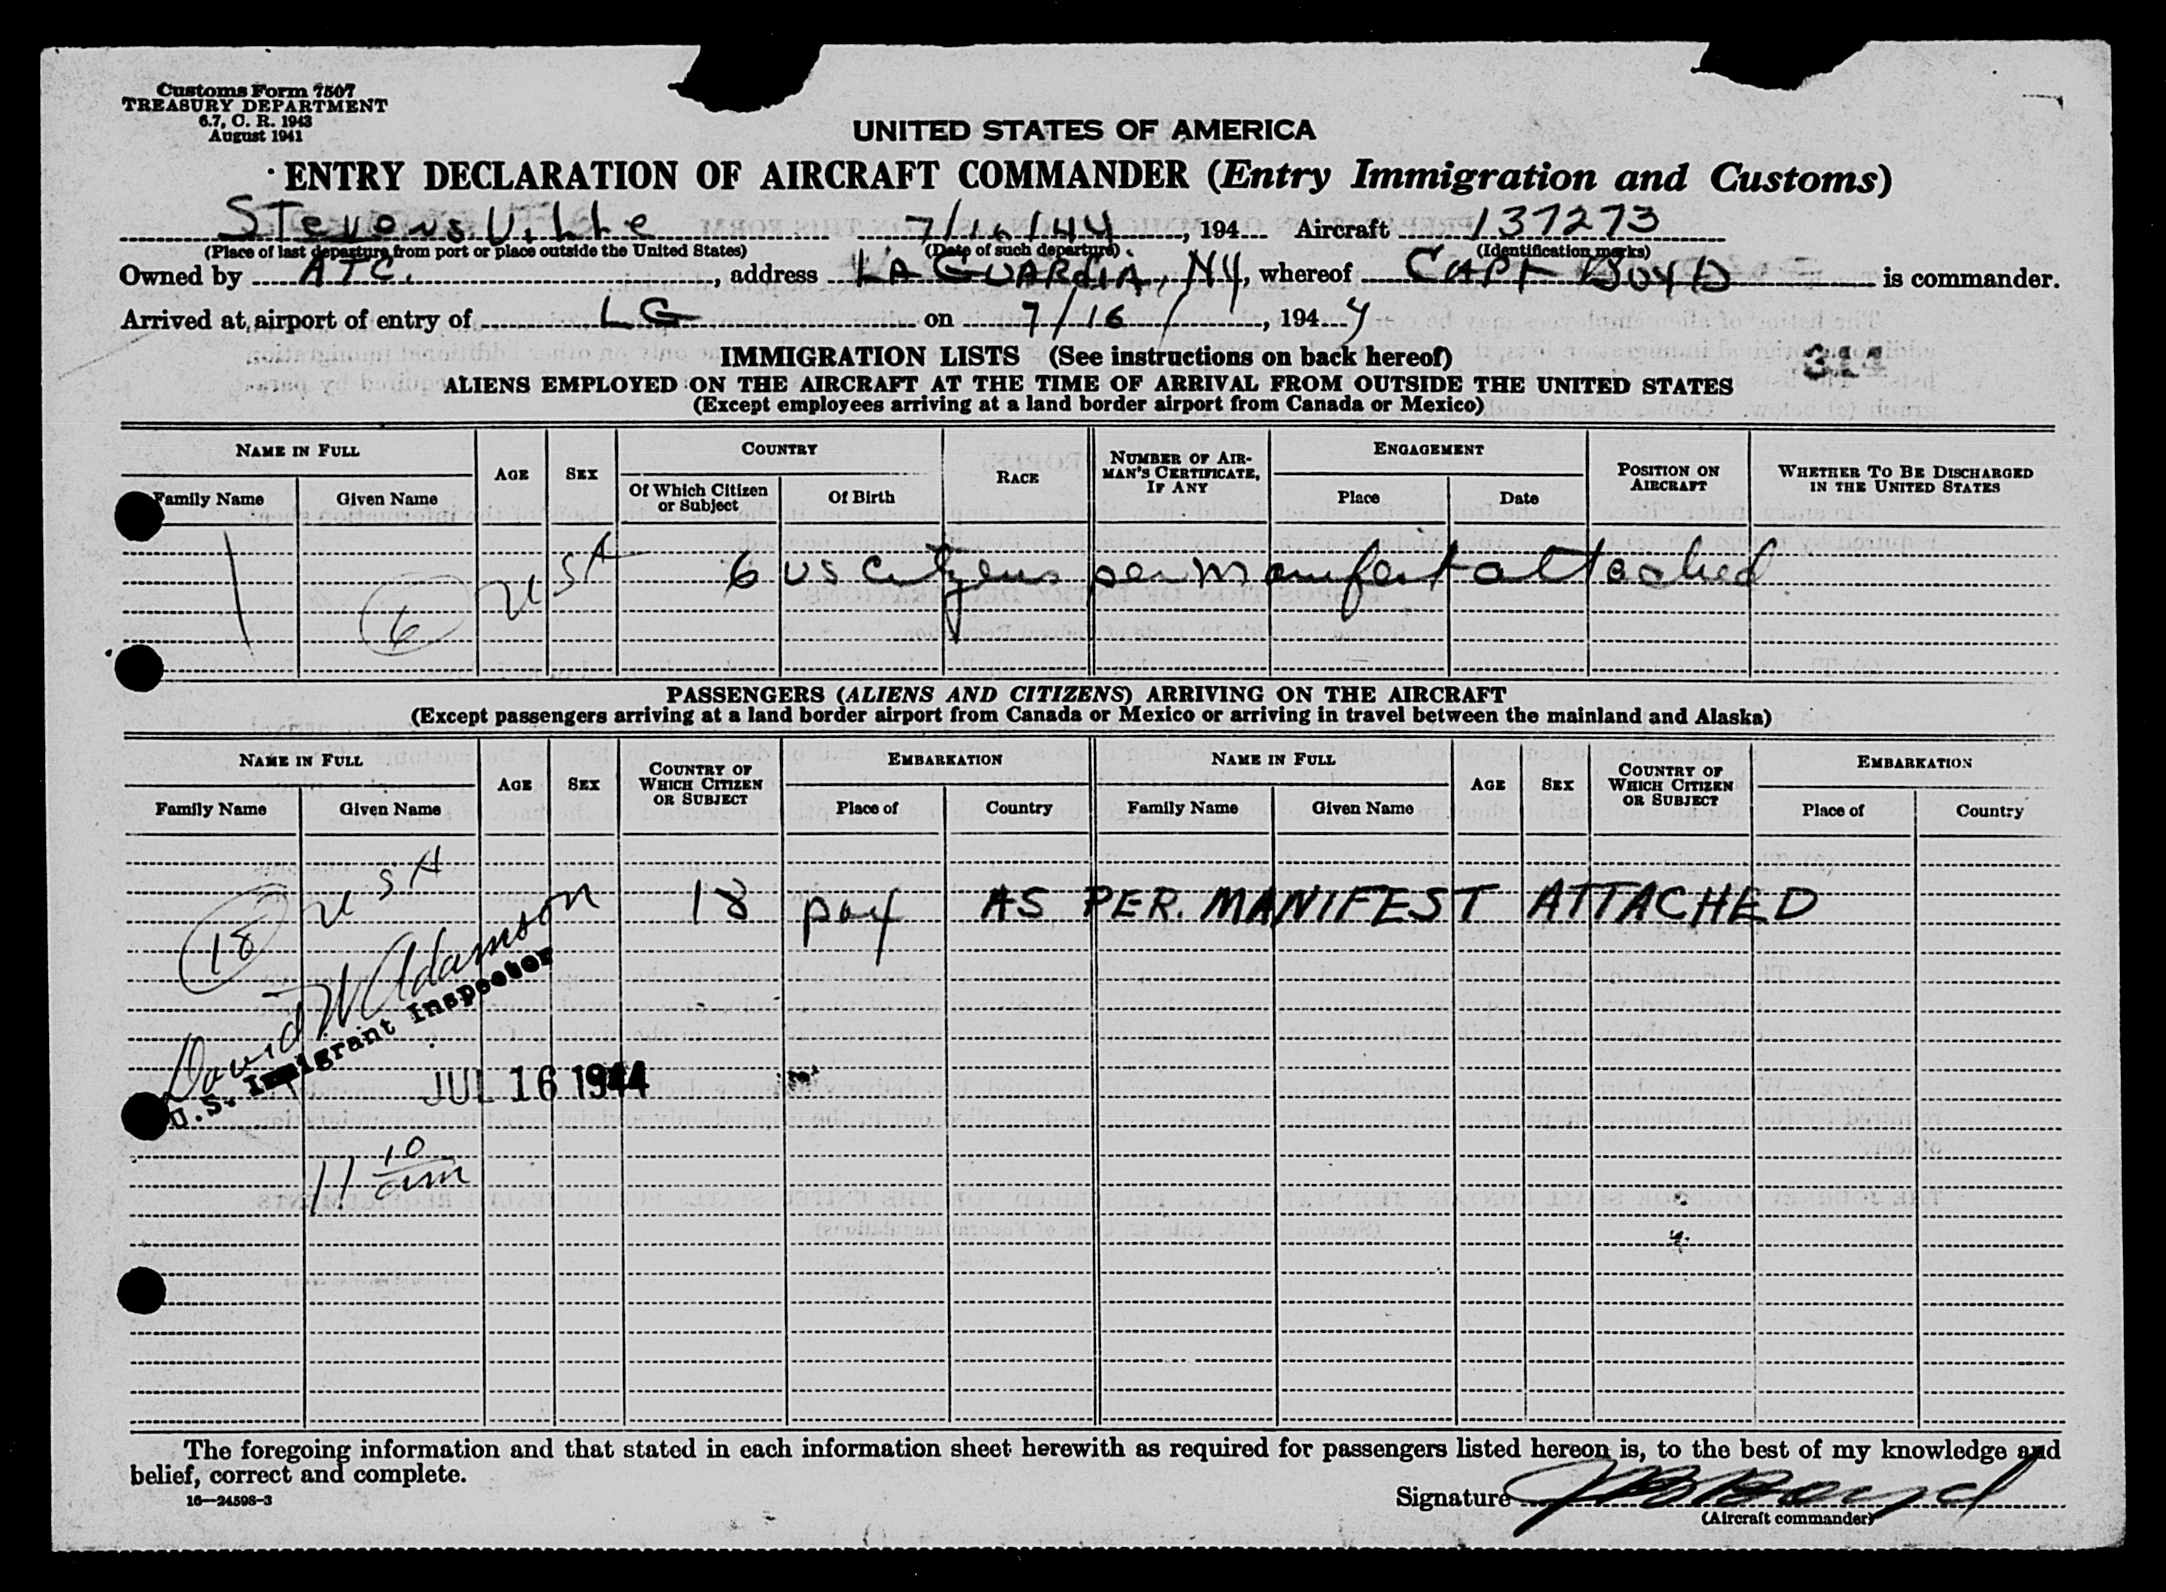 Customs Form 7507
TREASURY DEPARTMENT
6.7, C. R. 1943
August 1941
UNITED STATES OF AMERICA
ENTRY DECLARATION OF AIRCRAFT COMMANDER (Entry Immigration and Customs)
Stevensville 7/16/44, 194 Aircraft 137273
(Place of last departure from port or place outside the United States) (Date of such departure) (Identification marks)
Owned by ATC., address LA GUARDIA, NY, whereof CAPT BOYD is commander.
Arrived at airport of entry of LG on 7/16/, 1944
IMMIGRATION LISTS (See instructions on back hereof)
ALIENS EMPLOYED ON THE AIRCRAFT AT THE TIME OF ARRIVAL FROM OUTSIDE THE UNITED STATES
(Except employees arriving at a land border airport from Canada or Mexico)
NAME IN FULL AGE SEX COUNTRY RACE NUMBER OF AIRMAN'S CERTIFICATE, IF ANY ENGAGEMENT POSITION ON AIRCRAFT WHETHER TO BE DISCHARGED IN THE UNITED STATES
Family Name Given Name Of Which Citizen or Subject Of Birth Place Date
6 USA 6 US Citizens per Manifest attached
PASSENGERS (ALIENS AND CITIZENS) ARRIVING ON THE AIRCRAFT
(Except passengers arriving at a land border airport from Canada or Mexico or arriving in travel between the mainland and Alaska)
NAME IN FULL AGE SEX COUNTRY OF WHICH CITIZEN OR SUBJECT EMBARKATION NAME IN FULL AGE SEX COUNTRY OF WHICH CITIZEN OR SUBJECT EMBARKATION
Family Name Given Name Place of Country Family Name Given Name Place of Country
18 USA 18 AS PER. MANIFEST ATTACHED
David W Adamson
U.S. Immigrant Inspector
JUL 16 1944
11 10 am
The foregoing information and that stated in each information sheet herewith as required for passengers listed hereon is, to the best of my knowledge and
belief, correct and complete.
16—24598-3
Signature JB Boyd
(Aircraft commander)